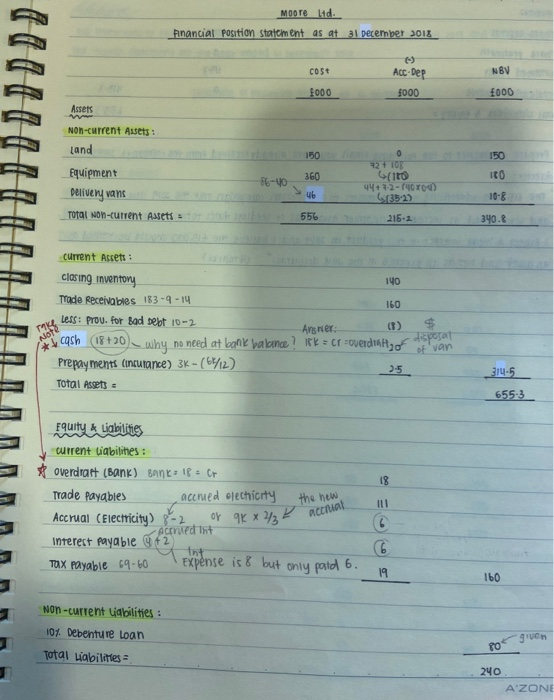 Moore Ltd.
Financial Position Statement as at 31 December 2018
(-)
cost Acc-Dep NBV
£000 £000 £000
Assets
Non-current Assets:
Land 150 0 150
72 + 108
Equipment 360 (180) 180
86-40 44+7.2-(40x0.4)
Delivery vans 46 (35.2) 10.8
Total Non-current Assets = 556 215.2 340.8
Current Assets:
closing inventory 140
Trade Receivables 183-9-14 160
Less: Prov. for Bad Debt 10-2 (8)
Take Note
cash (18+20) why no need at bank balance? Answer: 18K = cr = overdraft 20 $ disposal of van
Prepayments (Insurance) 3K-(6K/12) 2.5 314.5
Total Assets = 655.3
Equity & Liabilities
Current Liabilities:
Overdraft (Bank) Bank = 18 = Cr 18
Trade Payables 111
accrued electricity the new accrual
Accrual (Electricity) 8-2 or 9K x 2/3 6
accrued int
Interest Payable 4+2 6
Int Expense is 8 but only paid 6.
Tax Payable 69-60 19 160
Non-current Liabilities:
10% Debenture Loan 80 given
Total Liabilities = 240
A'ZONE